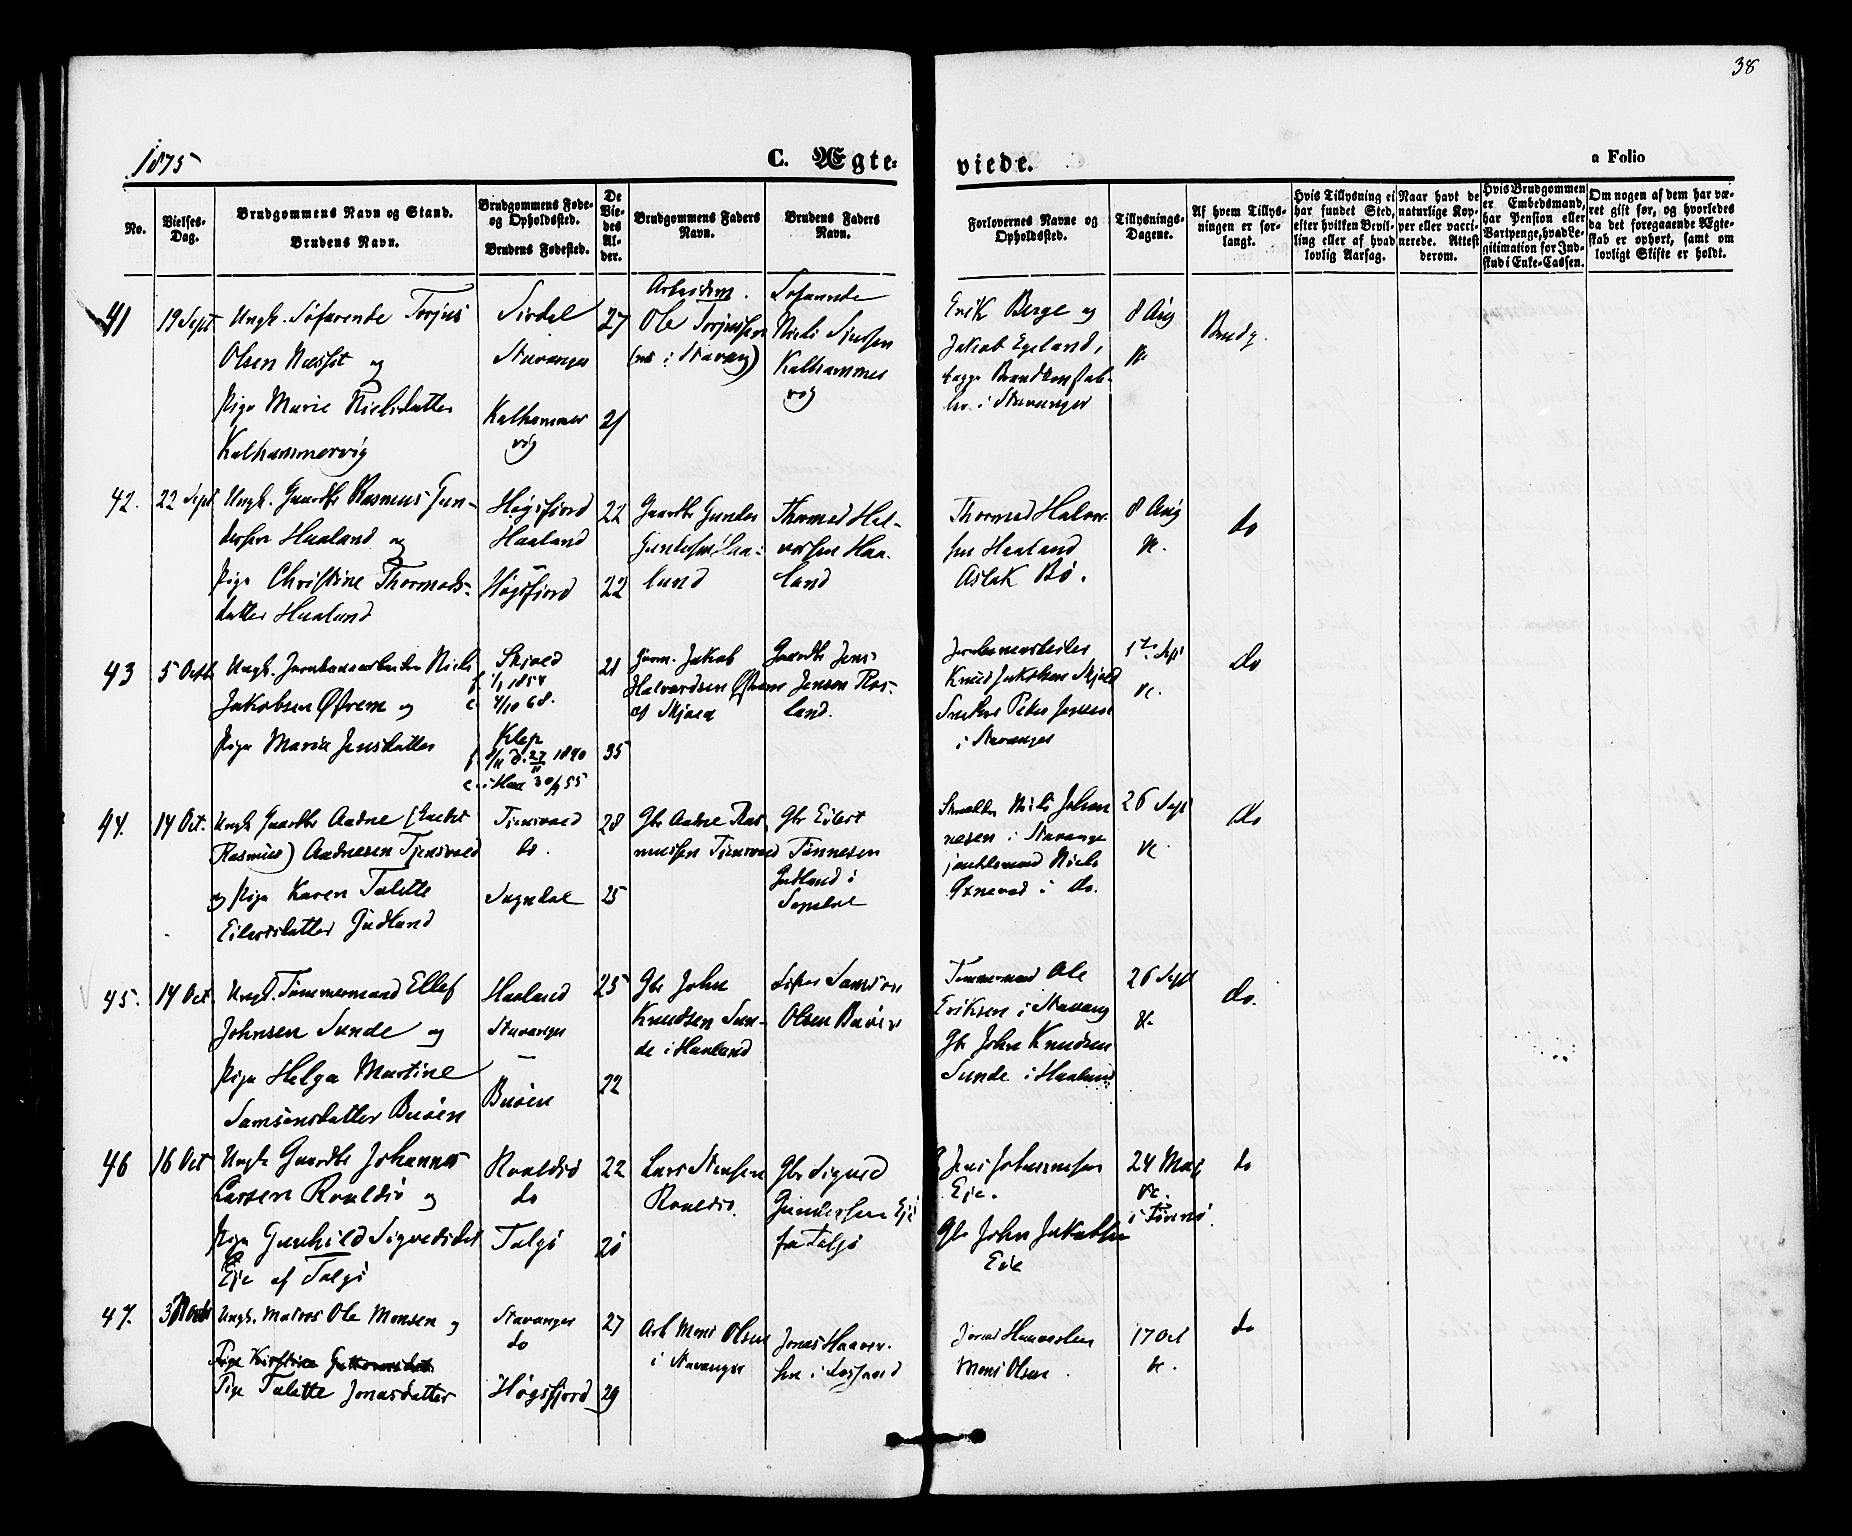 38
1875
C. Ægte-
viede.
a Folio
No.
Vielses-
Dag.
Brudgommens Navn og Stand.
Brudens Navn.
Brudgommens Føde-
og Opholdssted.
Brudens Fødested.
De
Vie-
des
Al-
der.
Brudgommens Faders
Navn.
Brudens Faders
Navn.
Forlovernes Navne og
Opholdssted.
Tillysnings-
Dagene.
Af hvem Tillys-
ningen er for-
langt.
Hvis Tillysning ei
har fundet Sted,
efter hvilken Bevil-
ling eller af hvad
lovlig Aarsag.
Naar havt de
naturlige Kop-
per eller vacci-
nerede. Attest
derom.
Hvis Brudgommen
er Embedsmand,
har Pension eller
Vartpenge, hvad Le-
gitimation for Ind-
skud i Enke-Cassen.
Om nogen af dem har væ-
ret gift før, og hvorledes
da det foregaaende Ægte-
skab er ophørt, samt om
lovligt Skifte er holdt.
41
19 Sept
Ungk. Søfarende Torjus
Olsen Næsset og
Pige Marie Nielsdatter
Kalhammervig
Sirdal
Stavanger
Kalhammer
vig
27
21
Arbeidsm.
Ole Torjussen
(nu i Stavang)
Søfarende
Niels Simsen
Kalhammer
vig
Erik Berge og
Jakob Egeland,
begge Brandkonstab-
ler i Stavanger
8 Aug
Brudg.
42.
22 Sept
Ungk. Gaardbr Rasmus Gun-
dersen Haaland og
Pige Christine Thormods-
datter Haaland
Høgsfjord
Haaland
Høgsfjord
22
22
Gaardbr Gunder
Gundersen Haa-
land
Thormod Hal-
vorsen Haa-
land
Thormod Halvor-
sen Haaland
Aslak Bø.
8 Aug
do
43
5 Octb
Ungk. Jernbanearbeider Niels
Jakobsen Østrem og
Pige Maria Jensdatter
Skjold
f. 1/1 1854
c. 4/10 68.
Klep
1840
c. i Haa 30/9 55
21
35
Jakob
Halvardsen Østrem
af Skjold
Gaardbr Jens
Jensen Ros-
land.
Jernbanearbeider
Knud Jakobsen Skjold
Snedker Peder Jensen
i Stavanger
5te Sept
do
44.
14 Oct.
Ungk Gaardbr Aadne (Enket
Rasmus) Aadnesen Tjensvold
og Pige Karen Talette
Eilertsdatter Gudland
Tjensvold
do.
Sogndal
28
25
Gbr Aadne Ras
mussen Tjensvold
Gbr Eilert
Tønnesen
Gudland i
Sogndal
Niels Johan
nesen i Stavange
Niels
i do.
26 Sept
do
45.
14 Oct
Ungk. Tømmermand Ellef
Johnsen Sunde og
Pige Helga Martine
Samsonsdatter Buøen
Haaland
Stavanger
–
Buøen
25
22
Gbr John
Knudsen Sun-
de i Haaland
Samson
Olsen Buøen
Tømmermand Ole
Eriksen i Stavang
Gbr John Knudsen
Sunde i Haaland
26 Sept
do.
46
16 Oct
Ungk Gaardbr Johannes
Larsen Roaldsø og
Pige Gunhild Sigvedsdat
Eje af Talgø
Roaldsø
do
Talgø
22
20
Lars Stensen
Roaldsø.
Gbr Sigved
Gundersen Eje
fra Talgø
Jens Johannesen
Eje.
Gbr John Jakobsen
Eie
24 Maj
i Finnø.
do
47.
3 Novb
Ungk. Matros Ole Monsen og
Pige Talette Jonasdatter
Stavanger
do
Høgsfjord
27
29
Arb Mons Olsen
i Stavanger
Jonas Haaver-
sen i Fossand
Jonas Haaversen
Mons Olsen
17 Oct
do